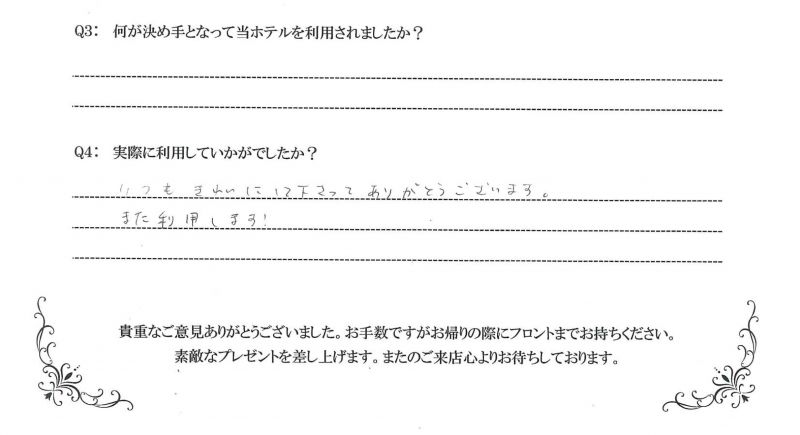 Q3： 何が決め手となって当ホテルを利用されましたか？
Q4： 実際に利用していかがでしたか？
いつもきれいにして下さってありがとうございます。
また利用します!
貴重なご意見ありがとうございました。お手数ですがお帰りの際にフロントまでお持ちください。
素敵なプレゼントを差し上げます。またのご来店心よりお待ちしております。